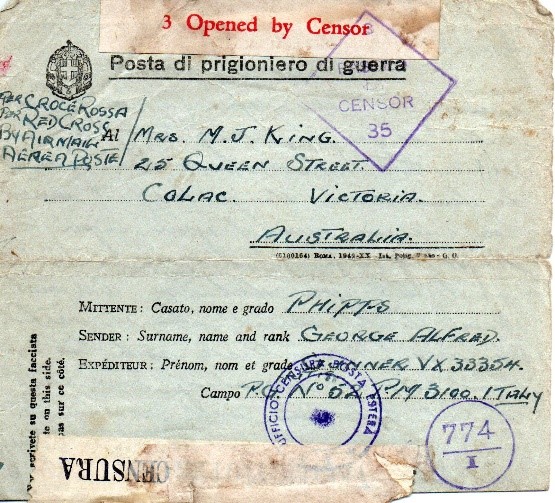 3 Opened by Censor
Posta di prigioniero di guerra
CENSOR
35
PER CROCE ROSSA
POR RED CROSS
BY AIR MAIL
AEREA POSTE
Al MRS. M. J. KING.
25 QUEEN STREET.
COLAC. VICTORIA.
AUSTRALIA.
ROMA, 1942-XX - Ist. Polig. Stato - G. C.
MITTENTE: Casato, nome e grado PHIPPS
SENDER: Surname, name and rank GEORGE ALFRED.
EXPÉDITEUR: Prénom, nom et grade GUNNER VX33354.
Campo P.G. Nº 52 PM 3100. ITALY
scrivete su questa facciata
on this side.
pas sur ce côté.
UFFICIO CENSURA POSTA ESTERA
774
I
CENSURA